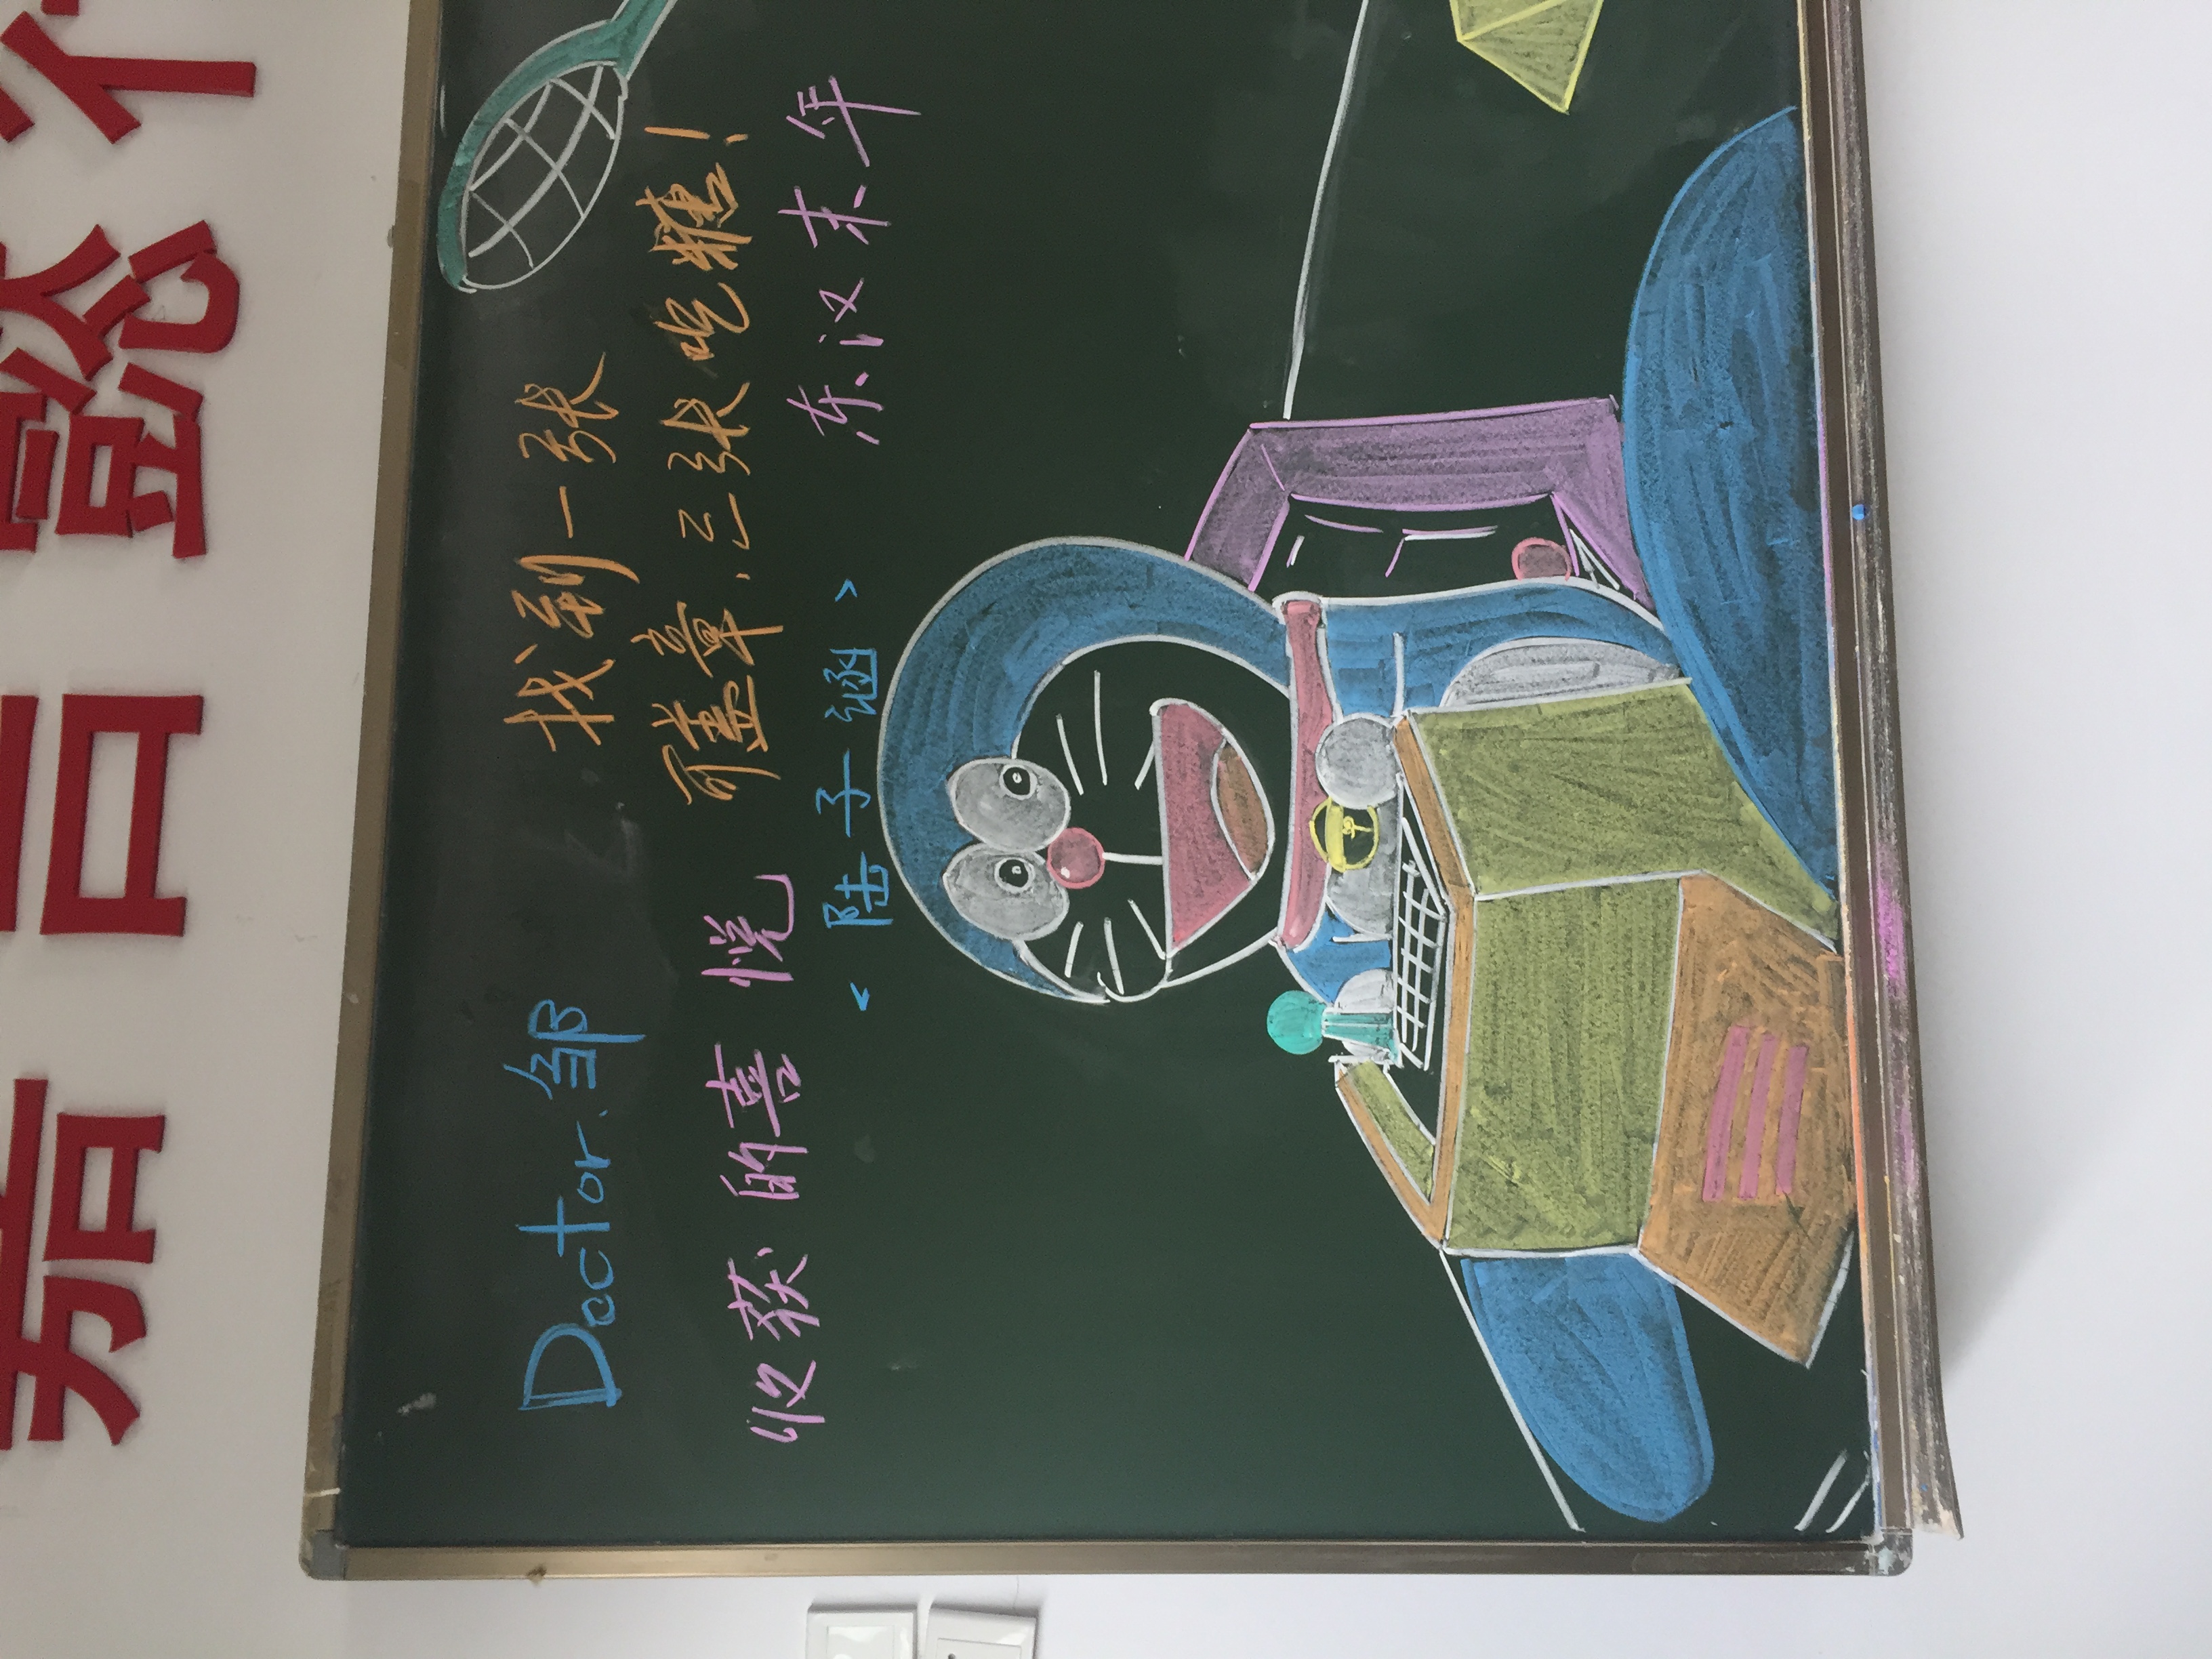 嘉言懿行
Doctor.邹
找到一张
可盖章,三张吃糖!
收获的喜悦
<陆子涵>
东汉末年